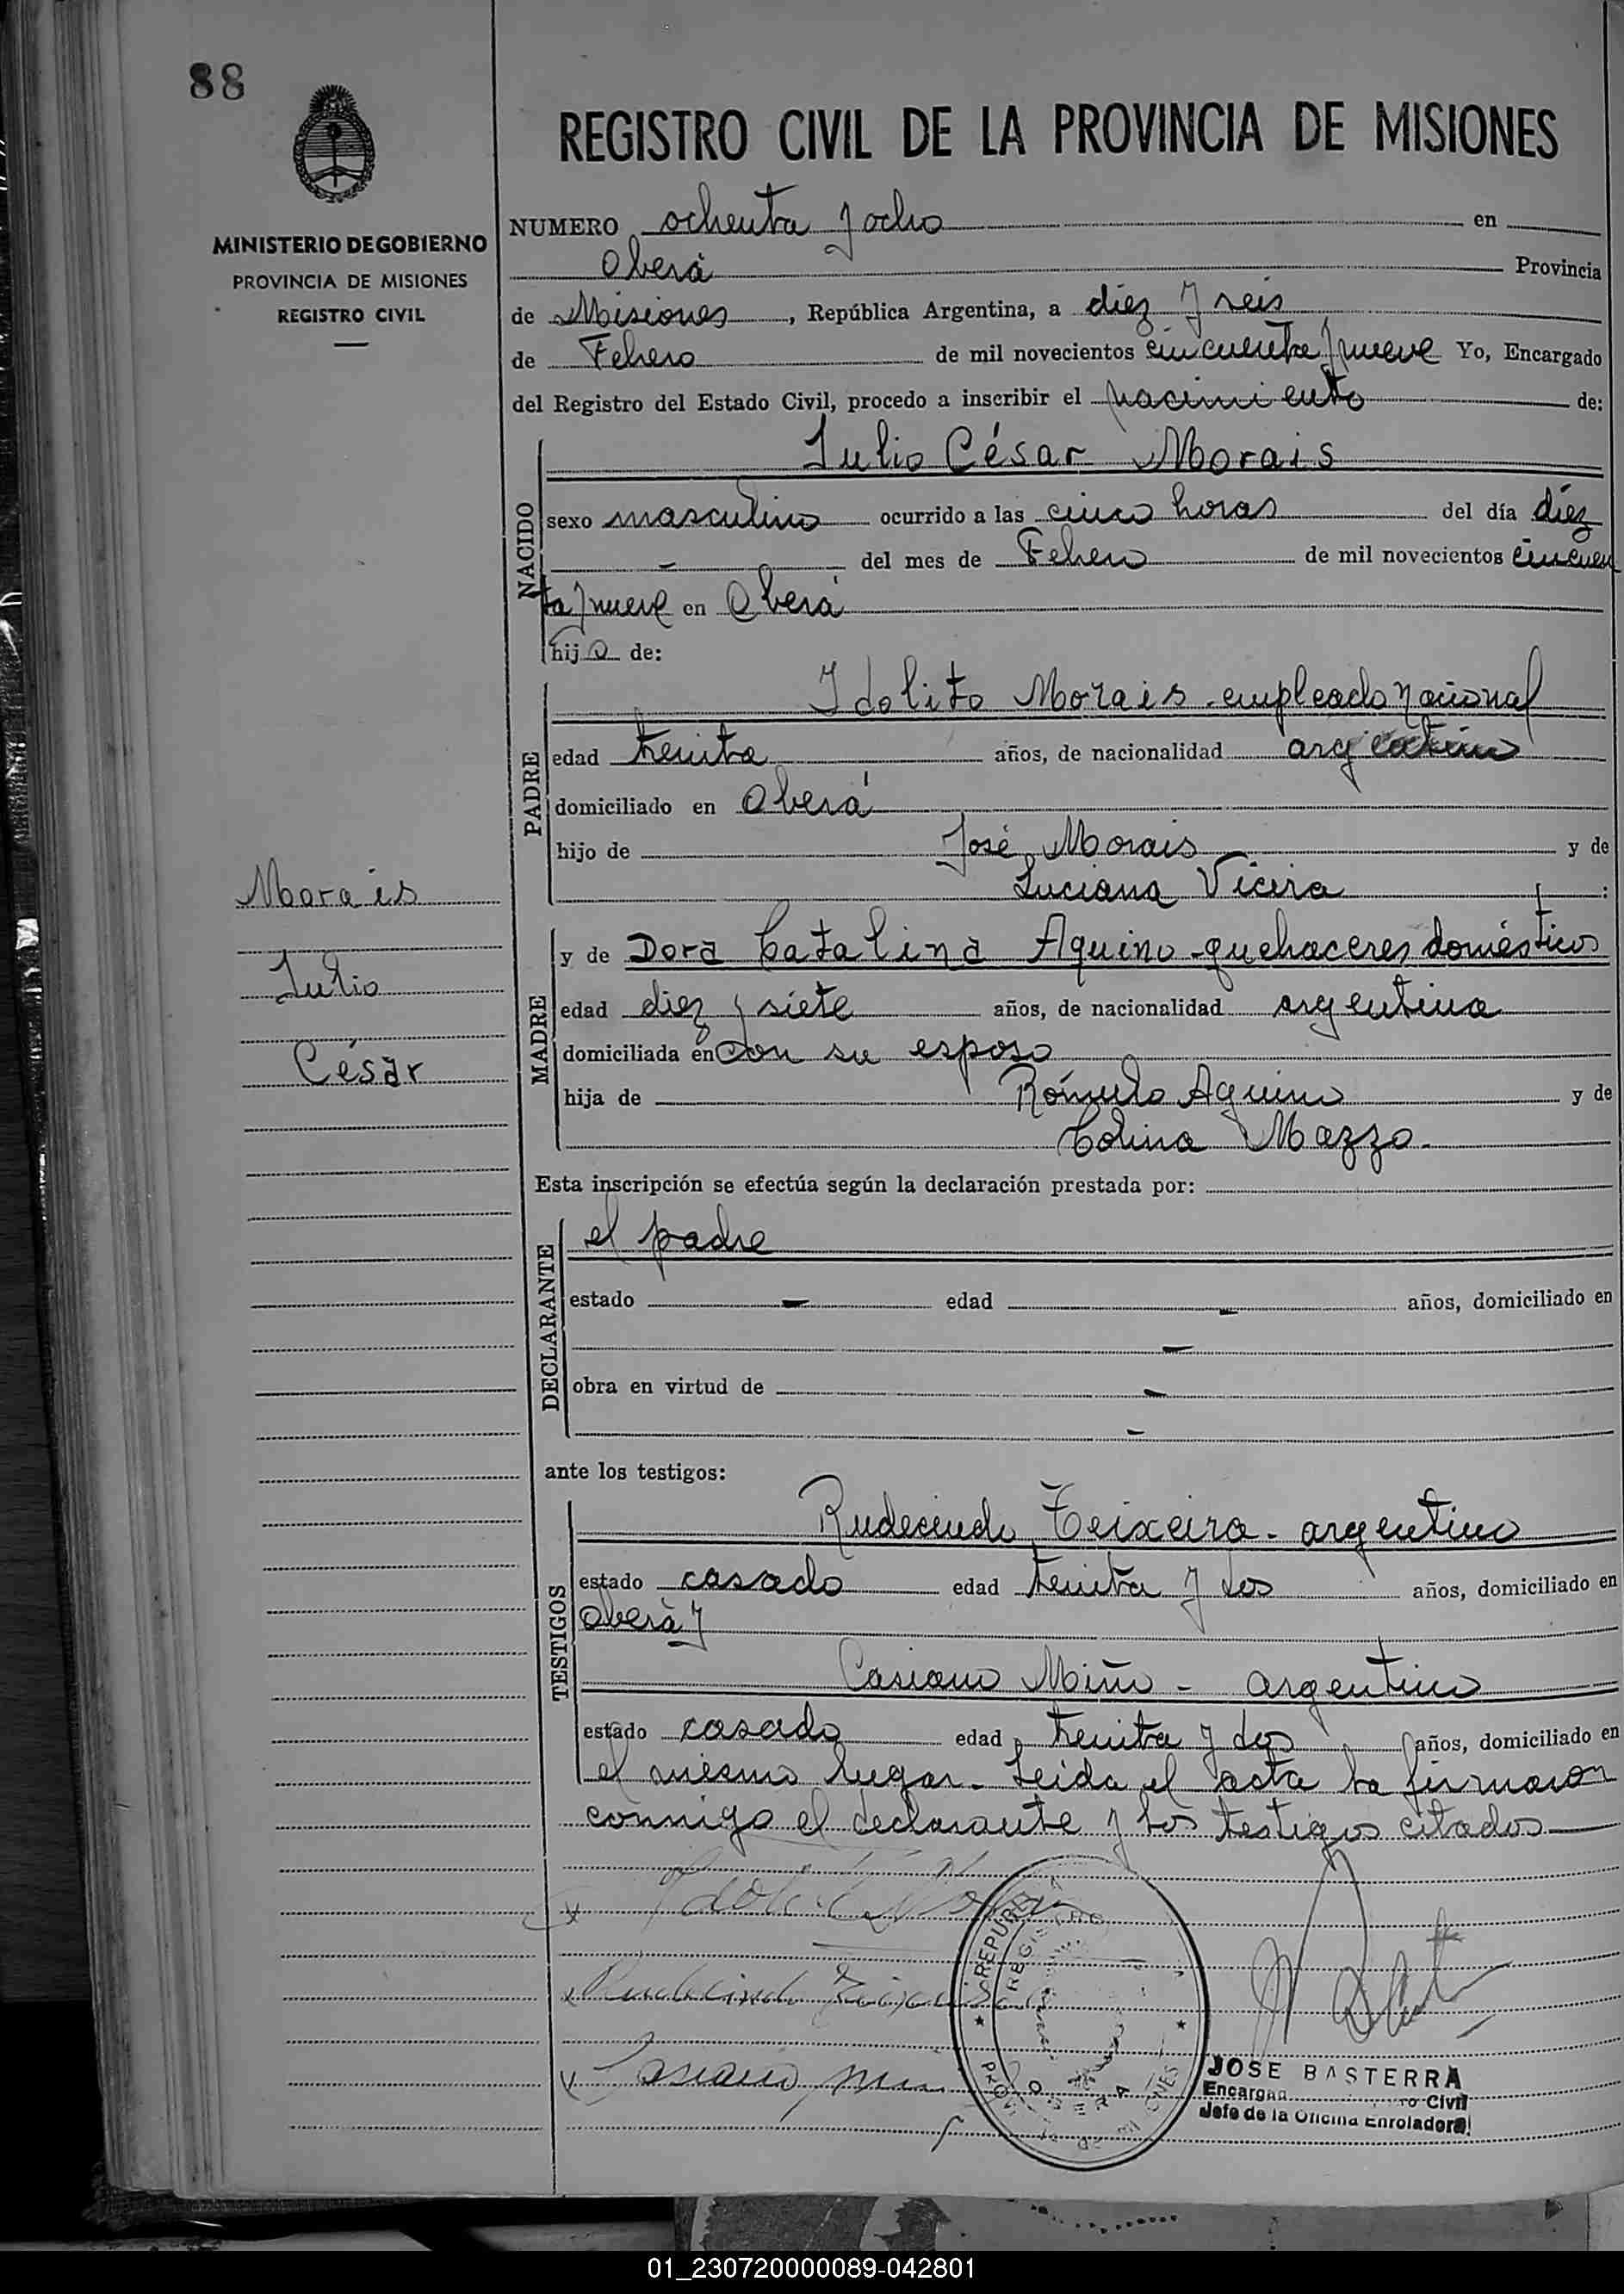 88
REGISTRO CIVIL DE LA PROVINCIA DE MISIONES
MINISTERIO DE GOBIERNO
PROVINCIA DE MISIONES
REGISTRO CIVIL
NUMERO ochenta y ocho en
Oberá Provincia
de Misiones, República Argentina, a diez y seis
de Febrero de mil novecientos cincuenta y nueve Yo, Encargado
del Registro del Estado Civil, procedo a inscribir el nacimiento de:
NACIDO
Julio César Morais
sexo masculino ocurrido a las cinco horas del día diez
- del mes de Febrero de mil novecientos cincuen
ta y nueve en Oberá
hijo de:
PADRE
Idolito Morais - empleado nacional
edad treinta años, de nacionalidad argentino
domiciliado en Oberá
hijo de José Morais y de
Luciana Vieira :
Morais
Julio
César
MADRE
y de Dora Catalina Aquino - quehaceres domésticos
edad diez y siete años, de nacionalidad argentina
domiciliada en con su esposo
hija de Rómulo Aquino y de
Mazzo.
Esta inscripción se efectúa según la declaración prestada por:
DECLARANTE
el padre
estado - edad - años, domiciliado en
-
obra en virtud de -
-
ante los testigos:
TESTIGOS
Rudecindo Teixeira - argentino
estado casado edad treinta y dos años, domiciliado en
Oberá y
Casiano Miño - argentino
estado casado edad treinta y dos años, domiciliado en
el mismo lugar - Leida el acta la firmaron
conmigo el declarante y los testigos citados
JOSE BASTERRA
Encargado Civil
Jefe de la Oficina Enroladora
01_230720000089-042801